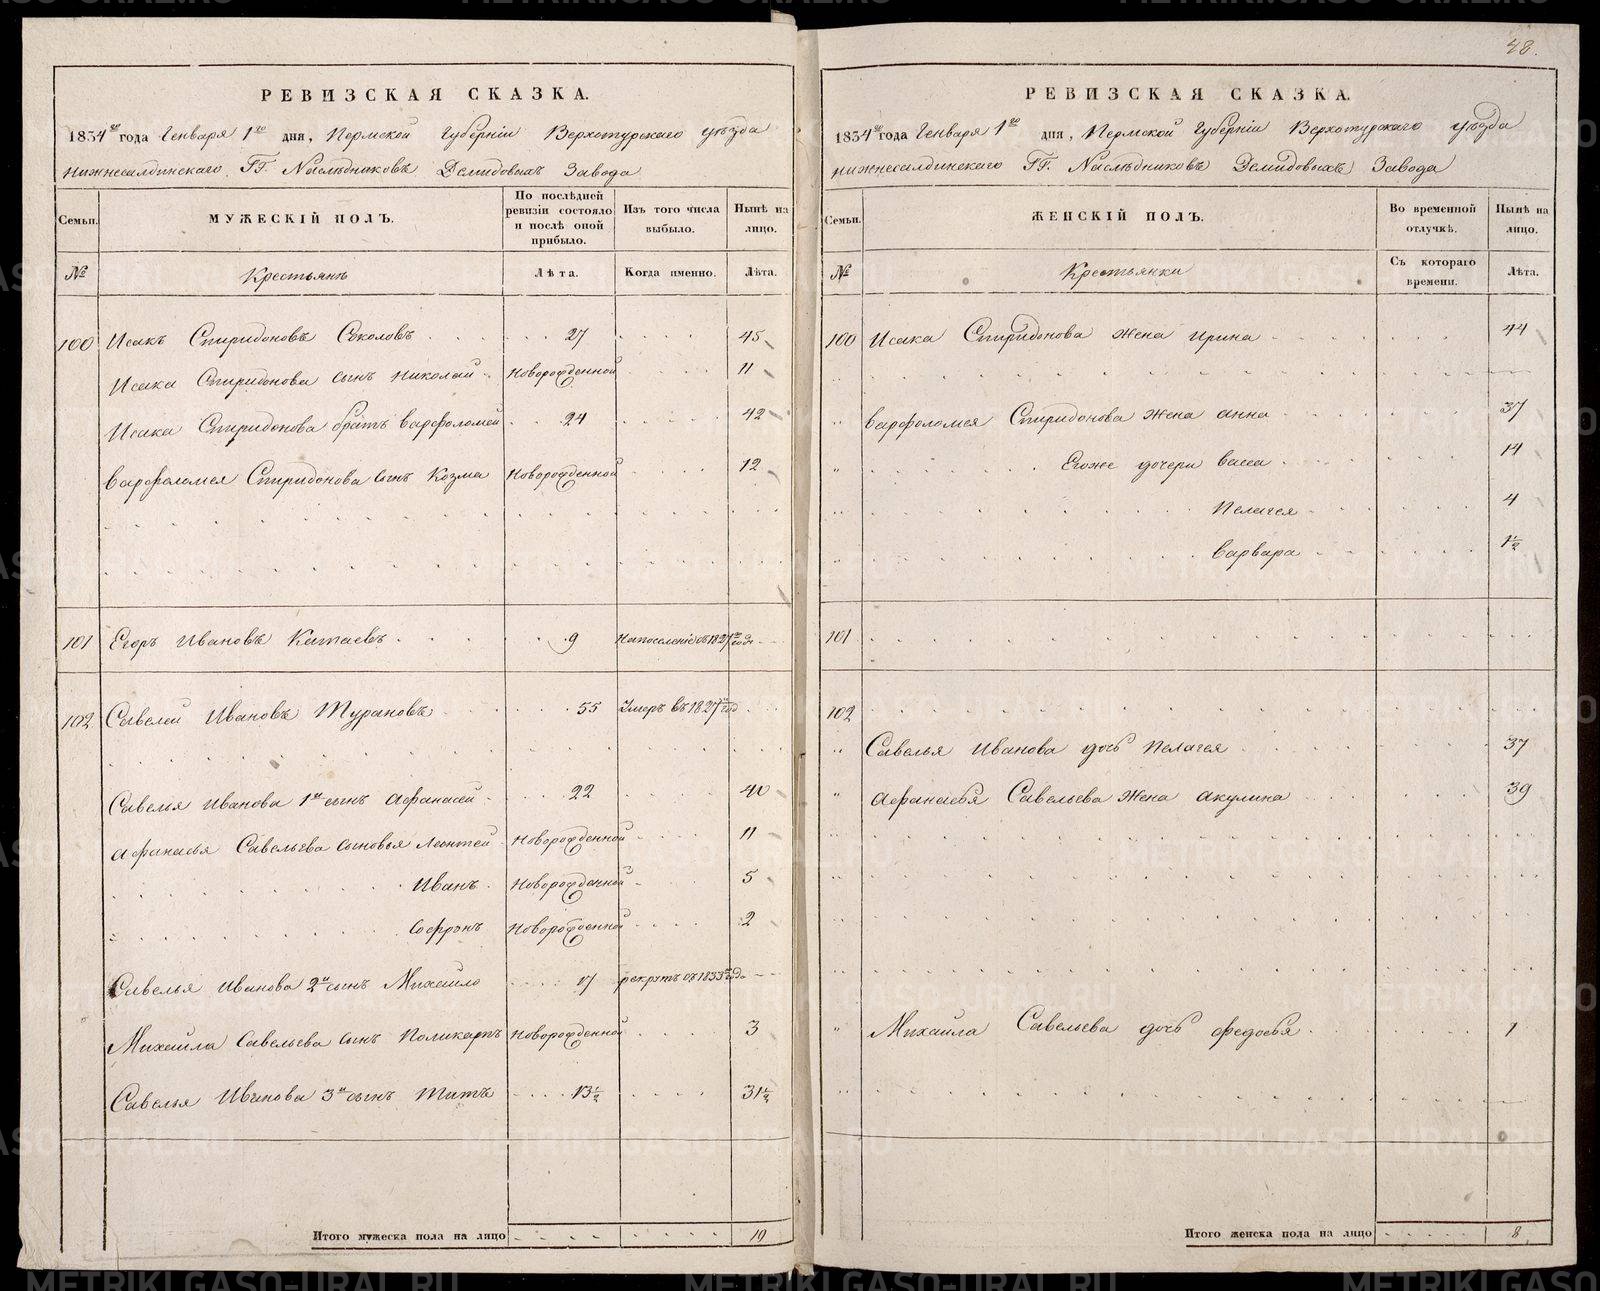 48.
РЕВИЗСКАЯ СКАЗКА.
1834го года Генваря 1го дня, Пермской Губернiи Верхотурскаго уѣзда
Нижнесалдинскаго ГГ. Наслѣдниковъ Демидовыхъ Завода
Семьи. МУЖЕСКIЙ ПОЛЪ. По послѣдней ревизiи состояло и послѣ оной прибыло. Изъ того числа выбыло. Нынѣ на лицо.
№ Крестьянѣ Лѣта. Когда именно. Лѣта.
100 Исакъ Спиридоновъ Соколовъ 27 45
Исака Спиридонова сынъ Николай Новорожденной 11
Исака Спиридонова братъ Варфоломей 24 42
Варфоломея Спиридонова сынъ Козма Новорожденной 12
101 Егоръ Ивановъ Китаевъ 9 На поселенiе въ 1827м годе
102 Савелей Ивановъ Турановъ 55 Умеръ въ 1827м годе
Савелья Иванова 1й сынъ Афанасей 22 40
Афанасья Савельева сыновья Леонтей Новорожденной 11
Иванъ Новорожденной 5
Софронъ Новорожденной 2
Савелья Иванова 2й сынъ Михайло 17 рекрутъ въ 1833м годе
Михайла Савельева сынъ Поликарпъ Новорожденной 3
Савелья Иванова 3й сынъ Титъ 13½ 31½
Итого мужеска пола на лицо 10
РЕВИЗСКАЯ СКАЗКА.
1834го года Генваря 1го дня, Пермской Губернiи Верхотурскаго уѣзда
Нижнесалдинскаго ГГ. Наслѣдниковъ Демидовыхъ Завода
Семьи. ЖЕНСКIЙ ПОЛЪ. Во временной отлучкѣ. Нынѣ на лицо.
№ Крестьянки Съ котораго времени. Лѣта.
100 Исака Спиридонова жена Ирина 44
Варфоломея Спиридонова жена Анна 37
Егоже дочери Васса 14
Пелагея 4
Варвара 1½
101
102
Савелья Иванова дочь Пелагея 37
Афанасья Савельева жена Акулина 39
Михайла Савельева дочь Федосья 1
Итого женска пола на лицо 8
METRIKI.GASO-URAL.RU